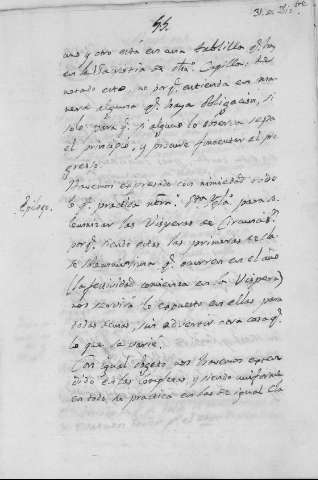 31. de Dic.bre
55.
uno y otro está en una tablilla q.e hay
en la Sacristia de Ntra. Capilla: he
notado esto, no porq.e entienda en ma
nera alguna q.e haya obligacion, si
solo para q.e si alguno lo observa sepa
el principio, y procure fomentar el pro
greso.
Epilogo.
Havemos expresado con nimiedad todo
lo q.e practica ntra. Sta. Ygla. para so
lemnizar las Visperas de Circuncis.on
porq.e siendo estas las primeras de cla
se q.e ocurren en el año
(la festividad comienza en la Vispera)
nos servirá lo expuesto en ellas para
todas otras, sin advertir otra cosa q.e
lo que las varie.
Con igual objeto nos havemos esten
dido en las Completas, y siendo uniforme
en todo la practica en las de igual cla